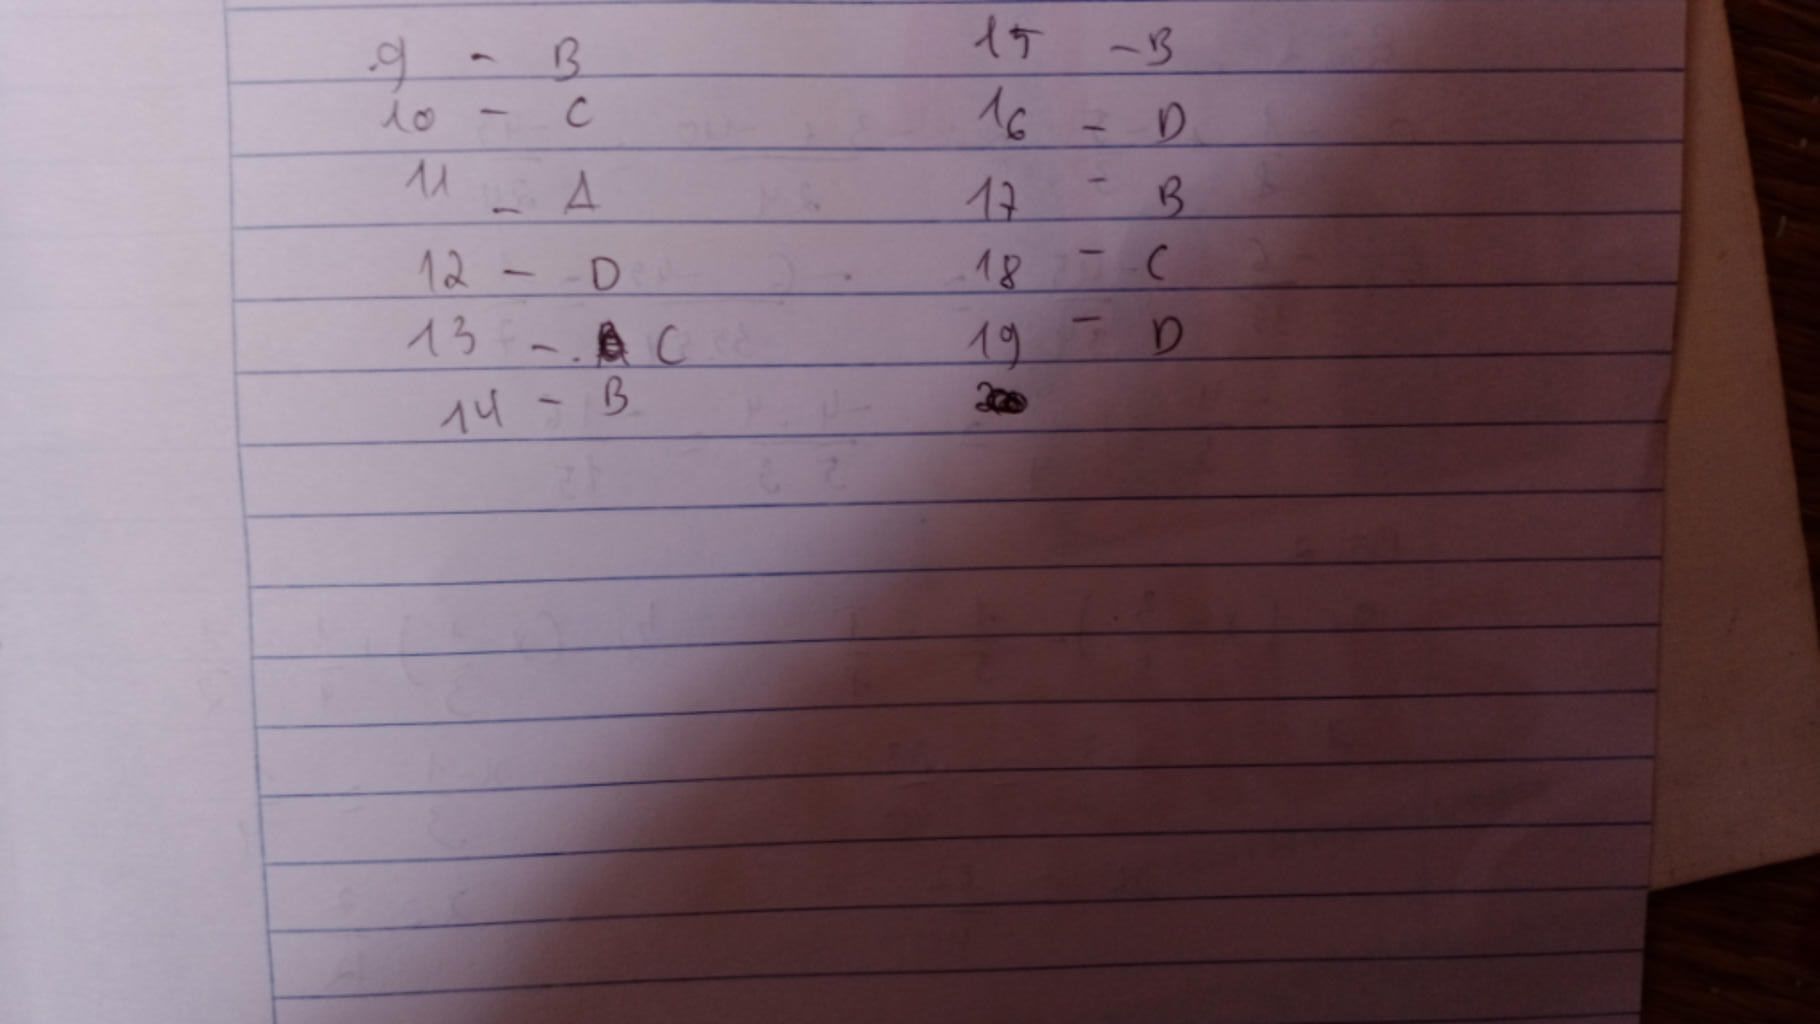 9 - B
10 - C
11 - A
12 - D
13 - C
14 - B
15 - B
16 - D
17 - B
18 - C
19 - D